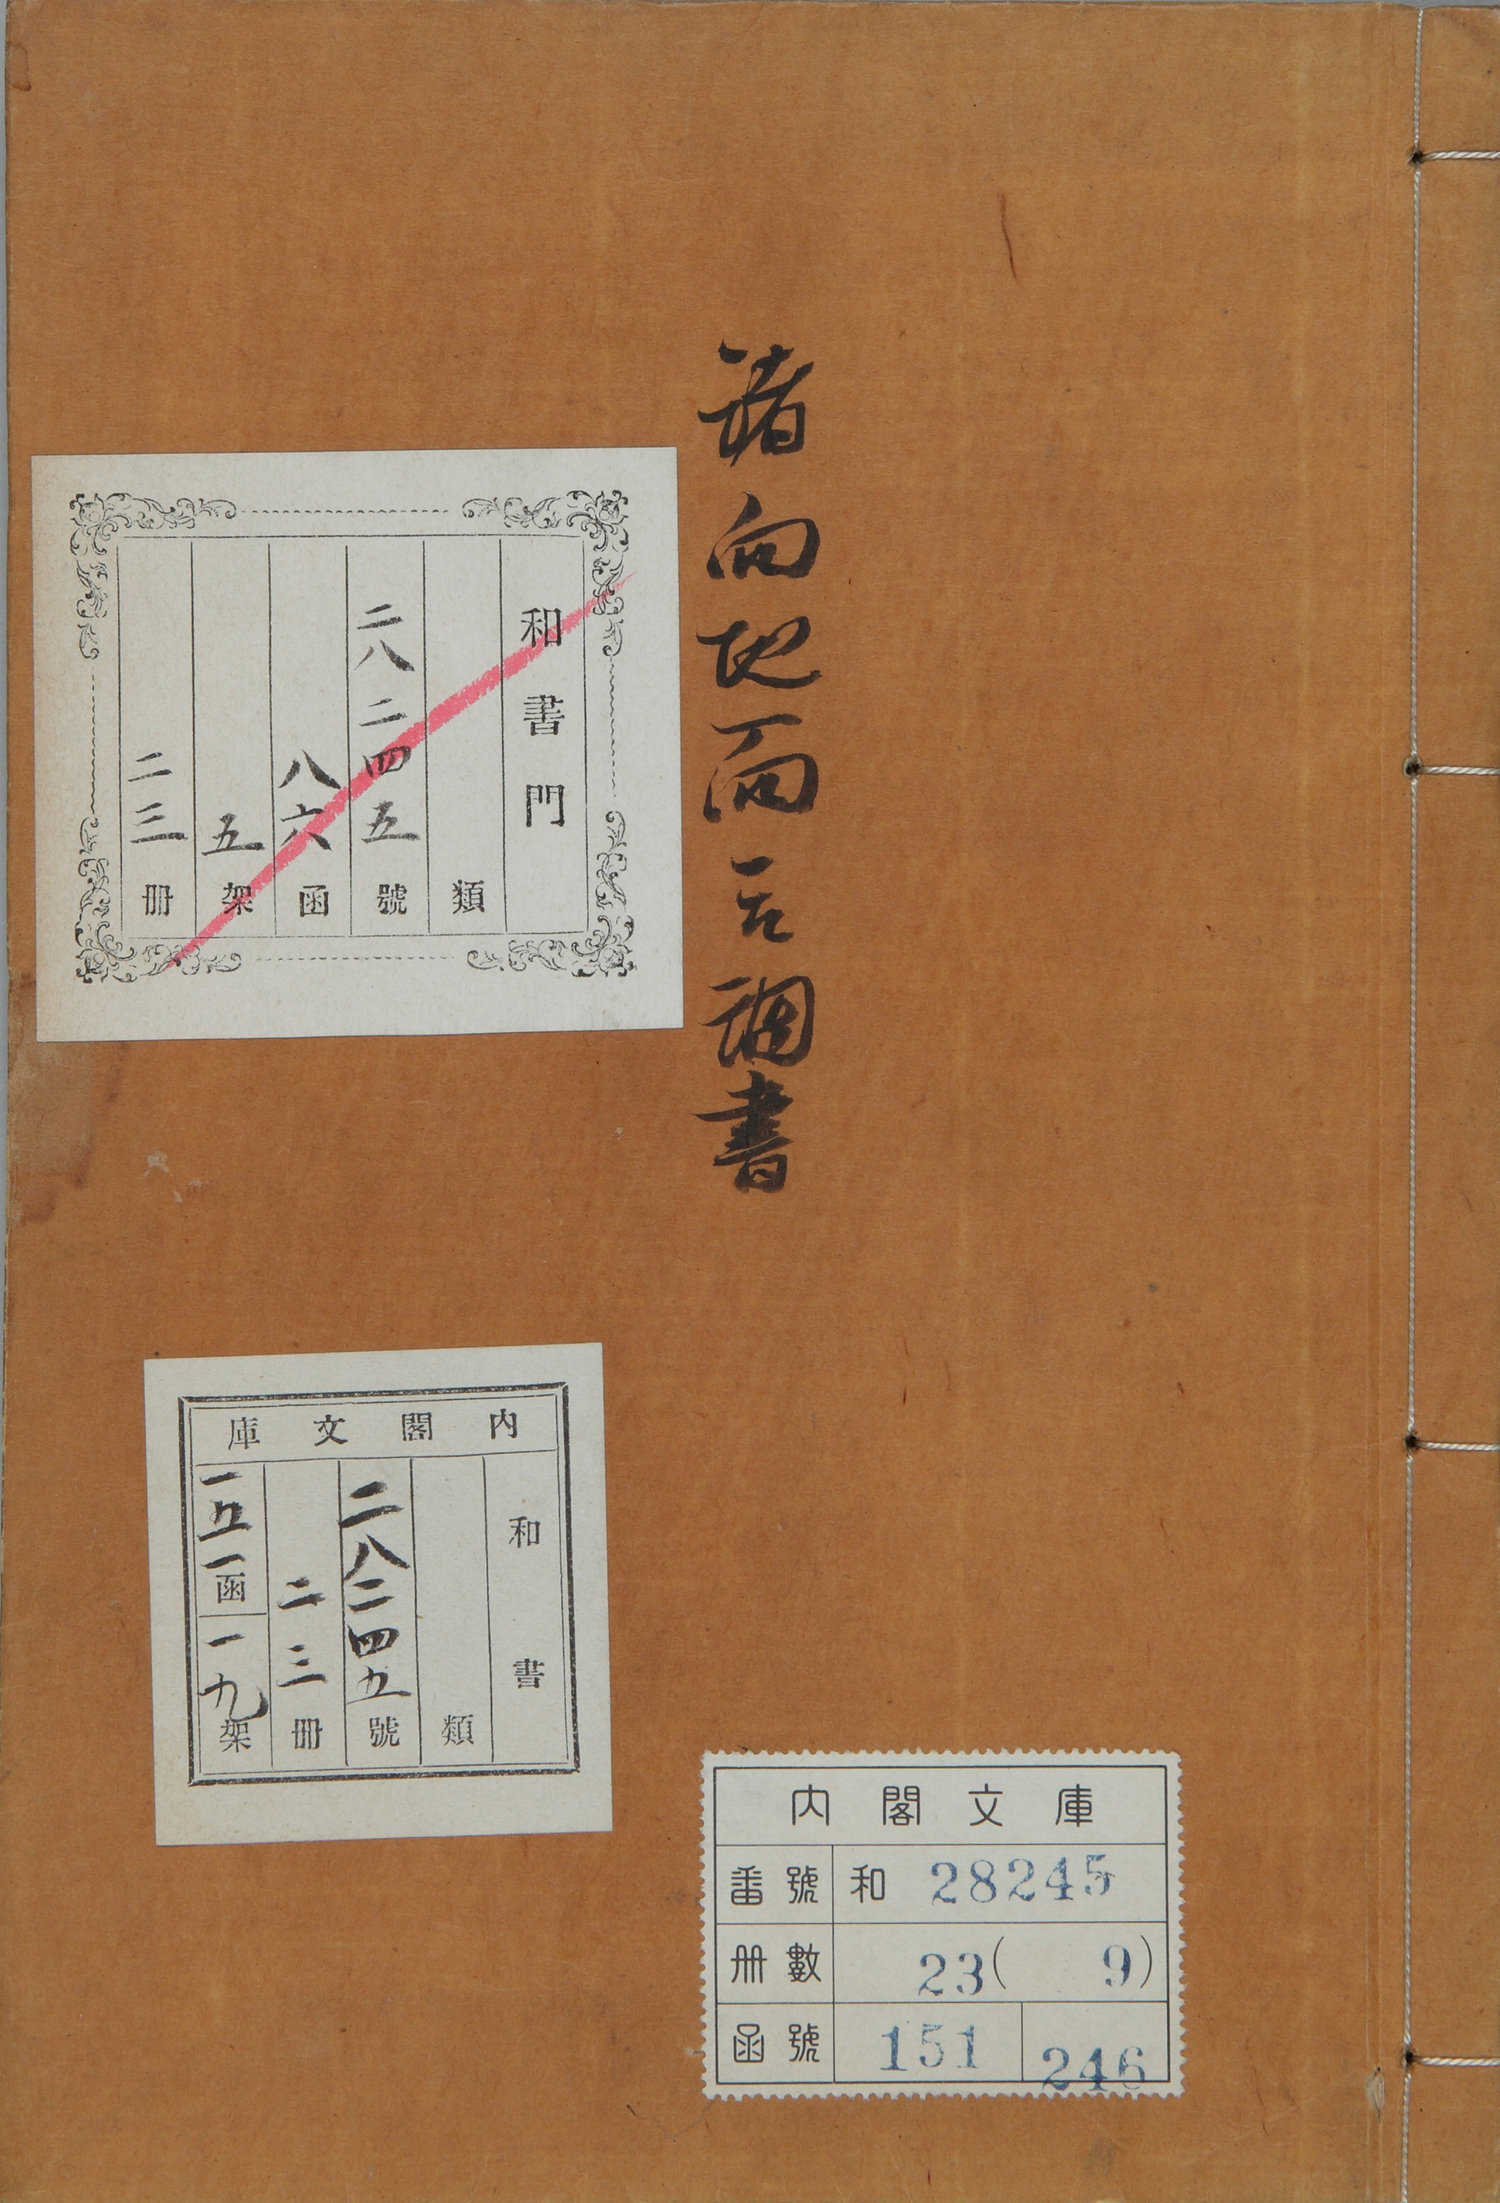 諸向地面取調書
和書門
類
二八二四五號
八六函
五架
二三冊
内閣文庫
和書
類
二八二四五號
二三冊
一五一函
一九架
内閣文庫
番號 和 28245
冊數 23( 9)
函號 151 246